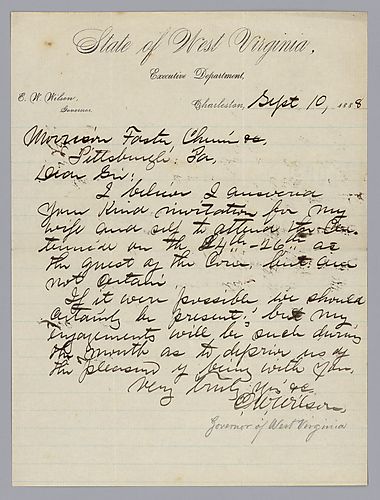 State of West Virginia,
Executive Department,
E. W. Wilson,
Governor.
Charleston, Sept 10, 1888
Morrison Foster Chmn &c.
Pittsburgh, Pa,
Dear Sir:
I believe I answered
your kind invitation for my
wife and self to attend the Cen-
tennial on the 24th-26th as
the guest of the Com, but am
not certain
If it were possible we should
certainly be present, but my
engagements will be such during
the month as to deprive us of
the pleasure of being with you.
Very truly yrs &c.
E W Wilson,
Governor of West Virginia